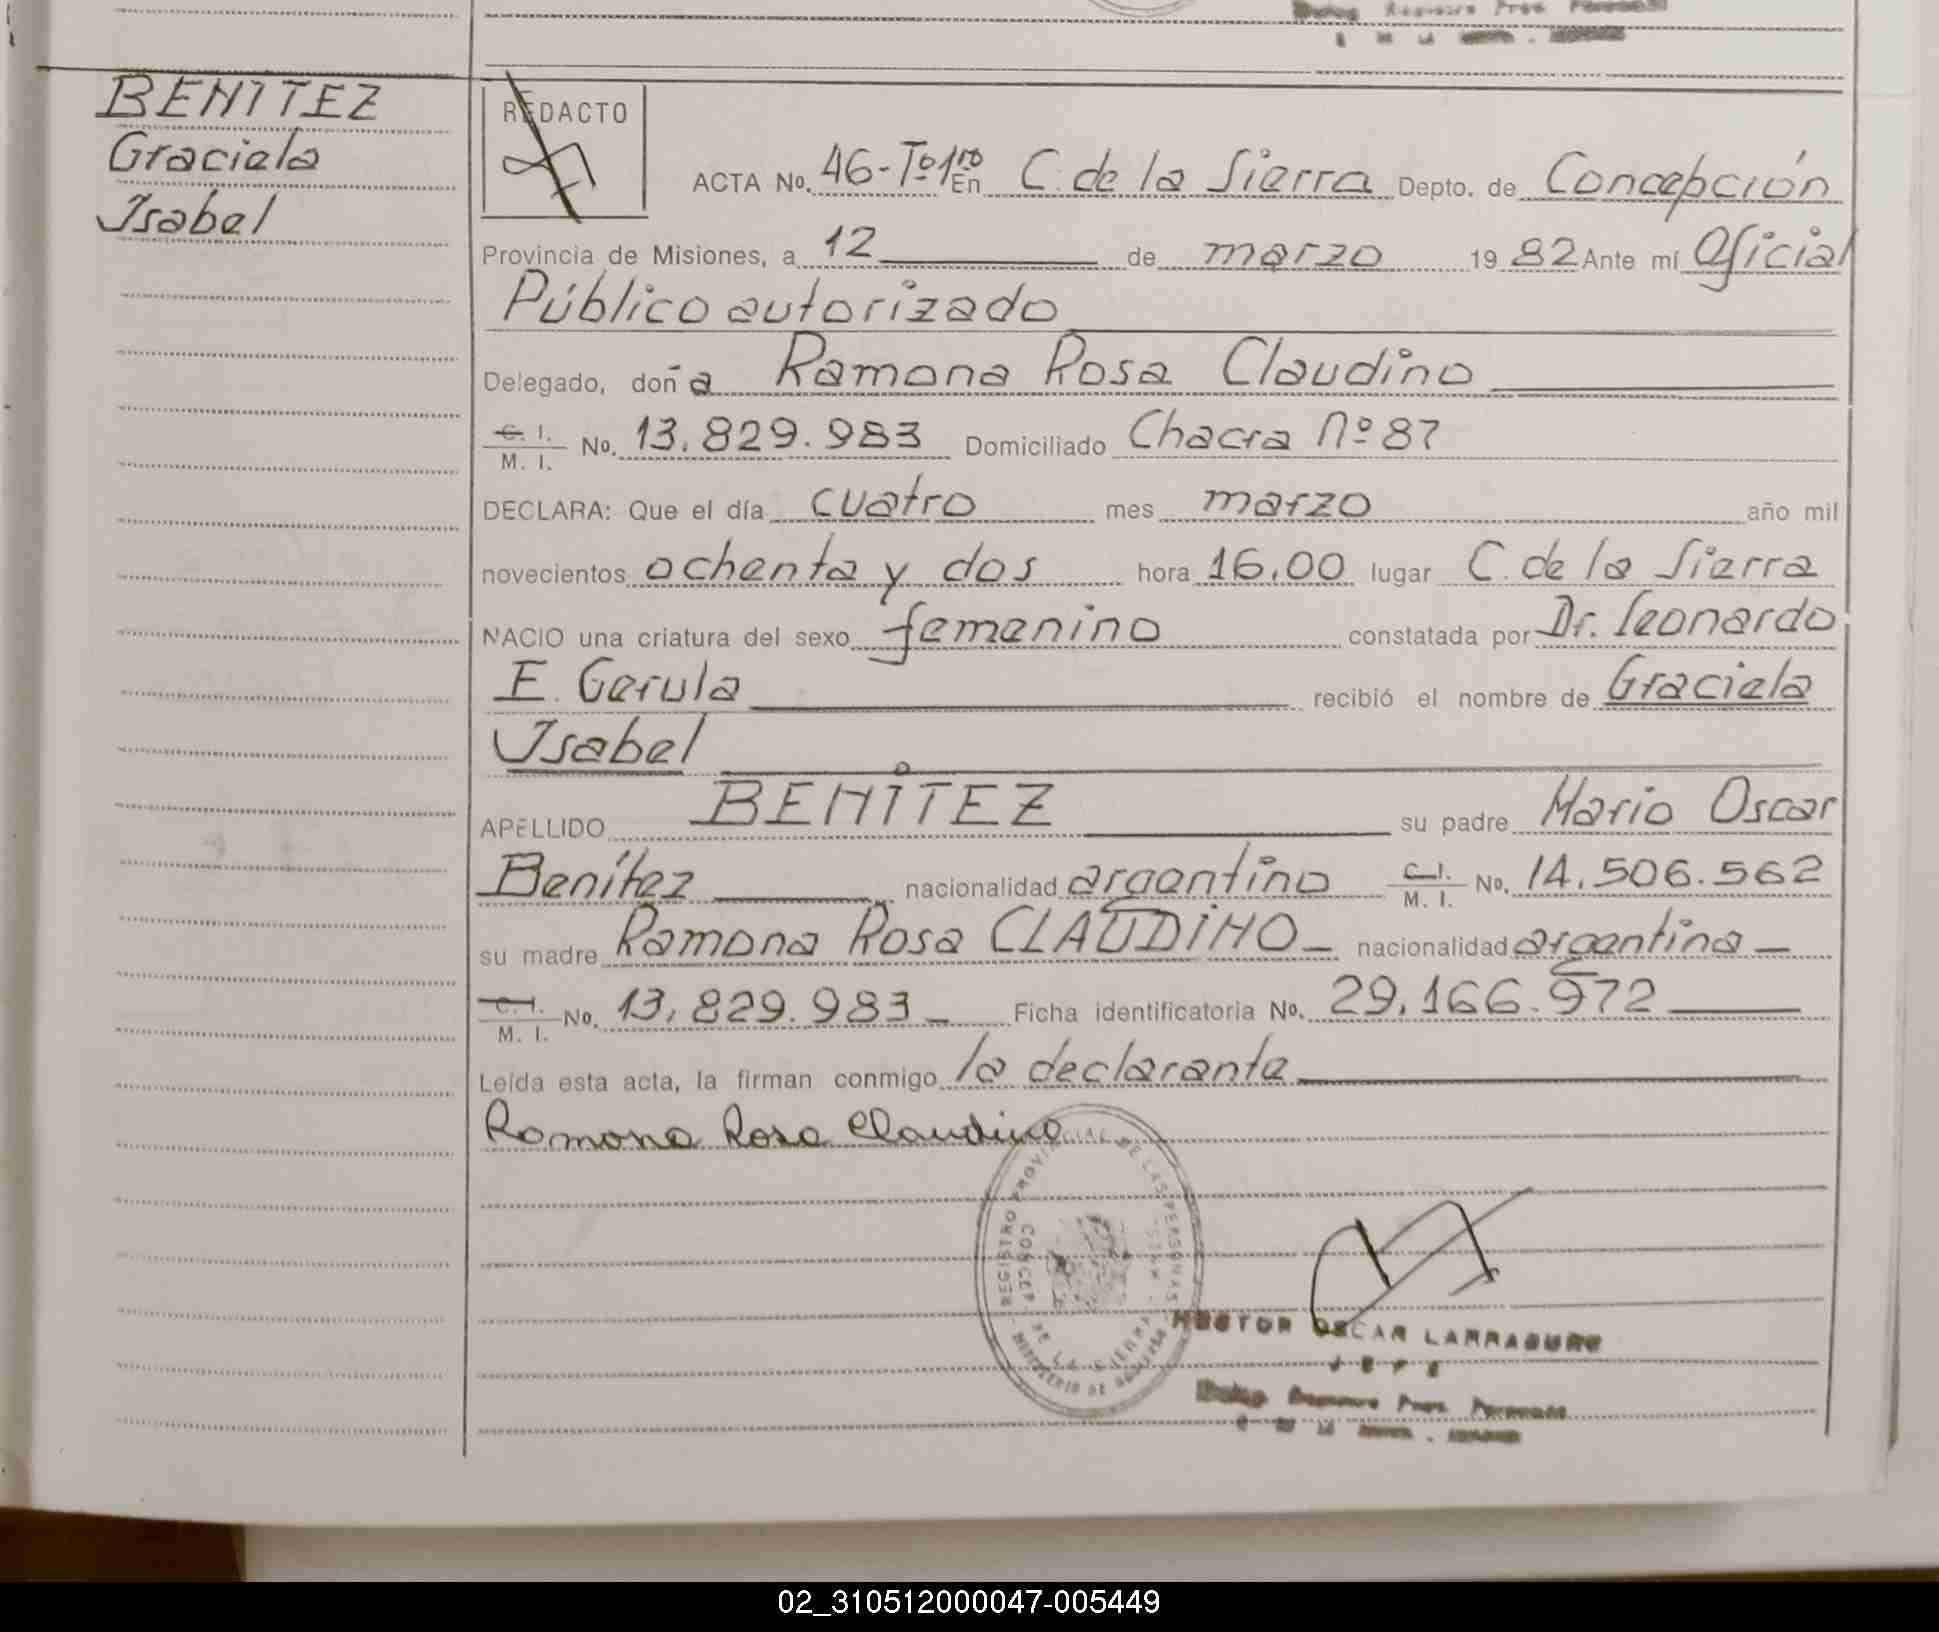 BENITEZ
Graciela
Isabel
REDACTO
ACTA No. 46-Tº1ro En C. de la Sierra Depto. de Concepción
Provincia de Misiones, a 12 de marzo 1982 Ante mí Oficial
Público autorizado
Delegado, doña Ramona Rosa Claudino
C. I. M. I. No. 13.829.983 Domiciliado Chacra Nº 87
DECLARA: Que el día cuatro mes marzo año mil
novecientos ochenta y dos hora 16,00 lugar C. de la Sierra
NACIO una criatura del sexo femenino constatada por Dr. Leonardo
E. Gerula recibió el nombre de Graciela
Isabel
APELLIDO BENITEZ su padre Mario Oscar
Benítez nacionalidad argentino C. I. M. I. No. 14.506.562
su madre Ramona Rosa CLAUDINO nacionalidad argentina
C. I. M. I. No. 13.829.983 Ficha identificatoria No. 29.166.972
Leída esta acta, la firman conmigo la declarante
Ramona Rosa Claudino
REGISTRO PROVINCIAL DE LAS PERSONAS
CONCEP. DE LA SIERRA
MINISTERIO DE
HECTOR OSCAR LARRABURE
JEFE
02_310512000047-005449